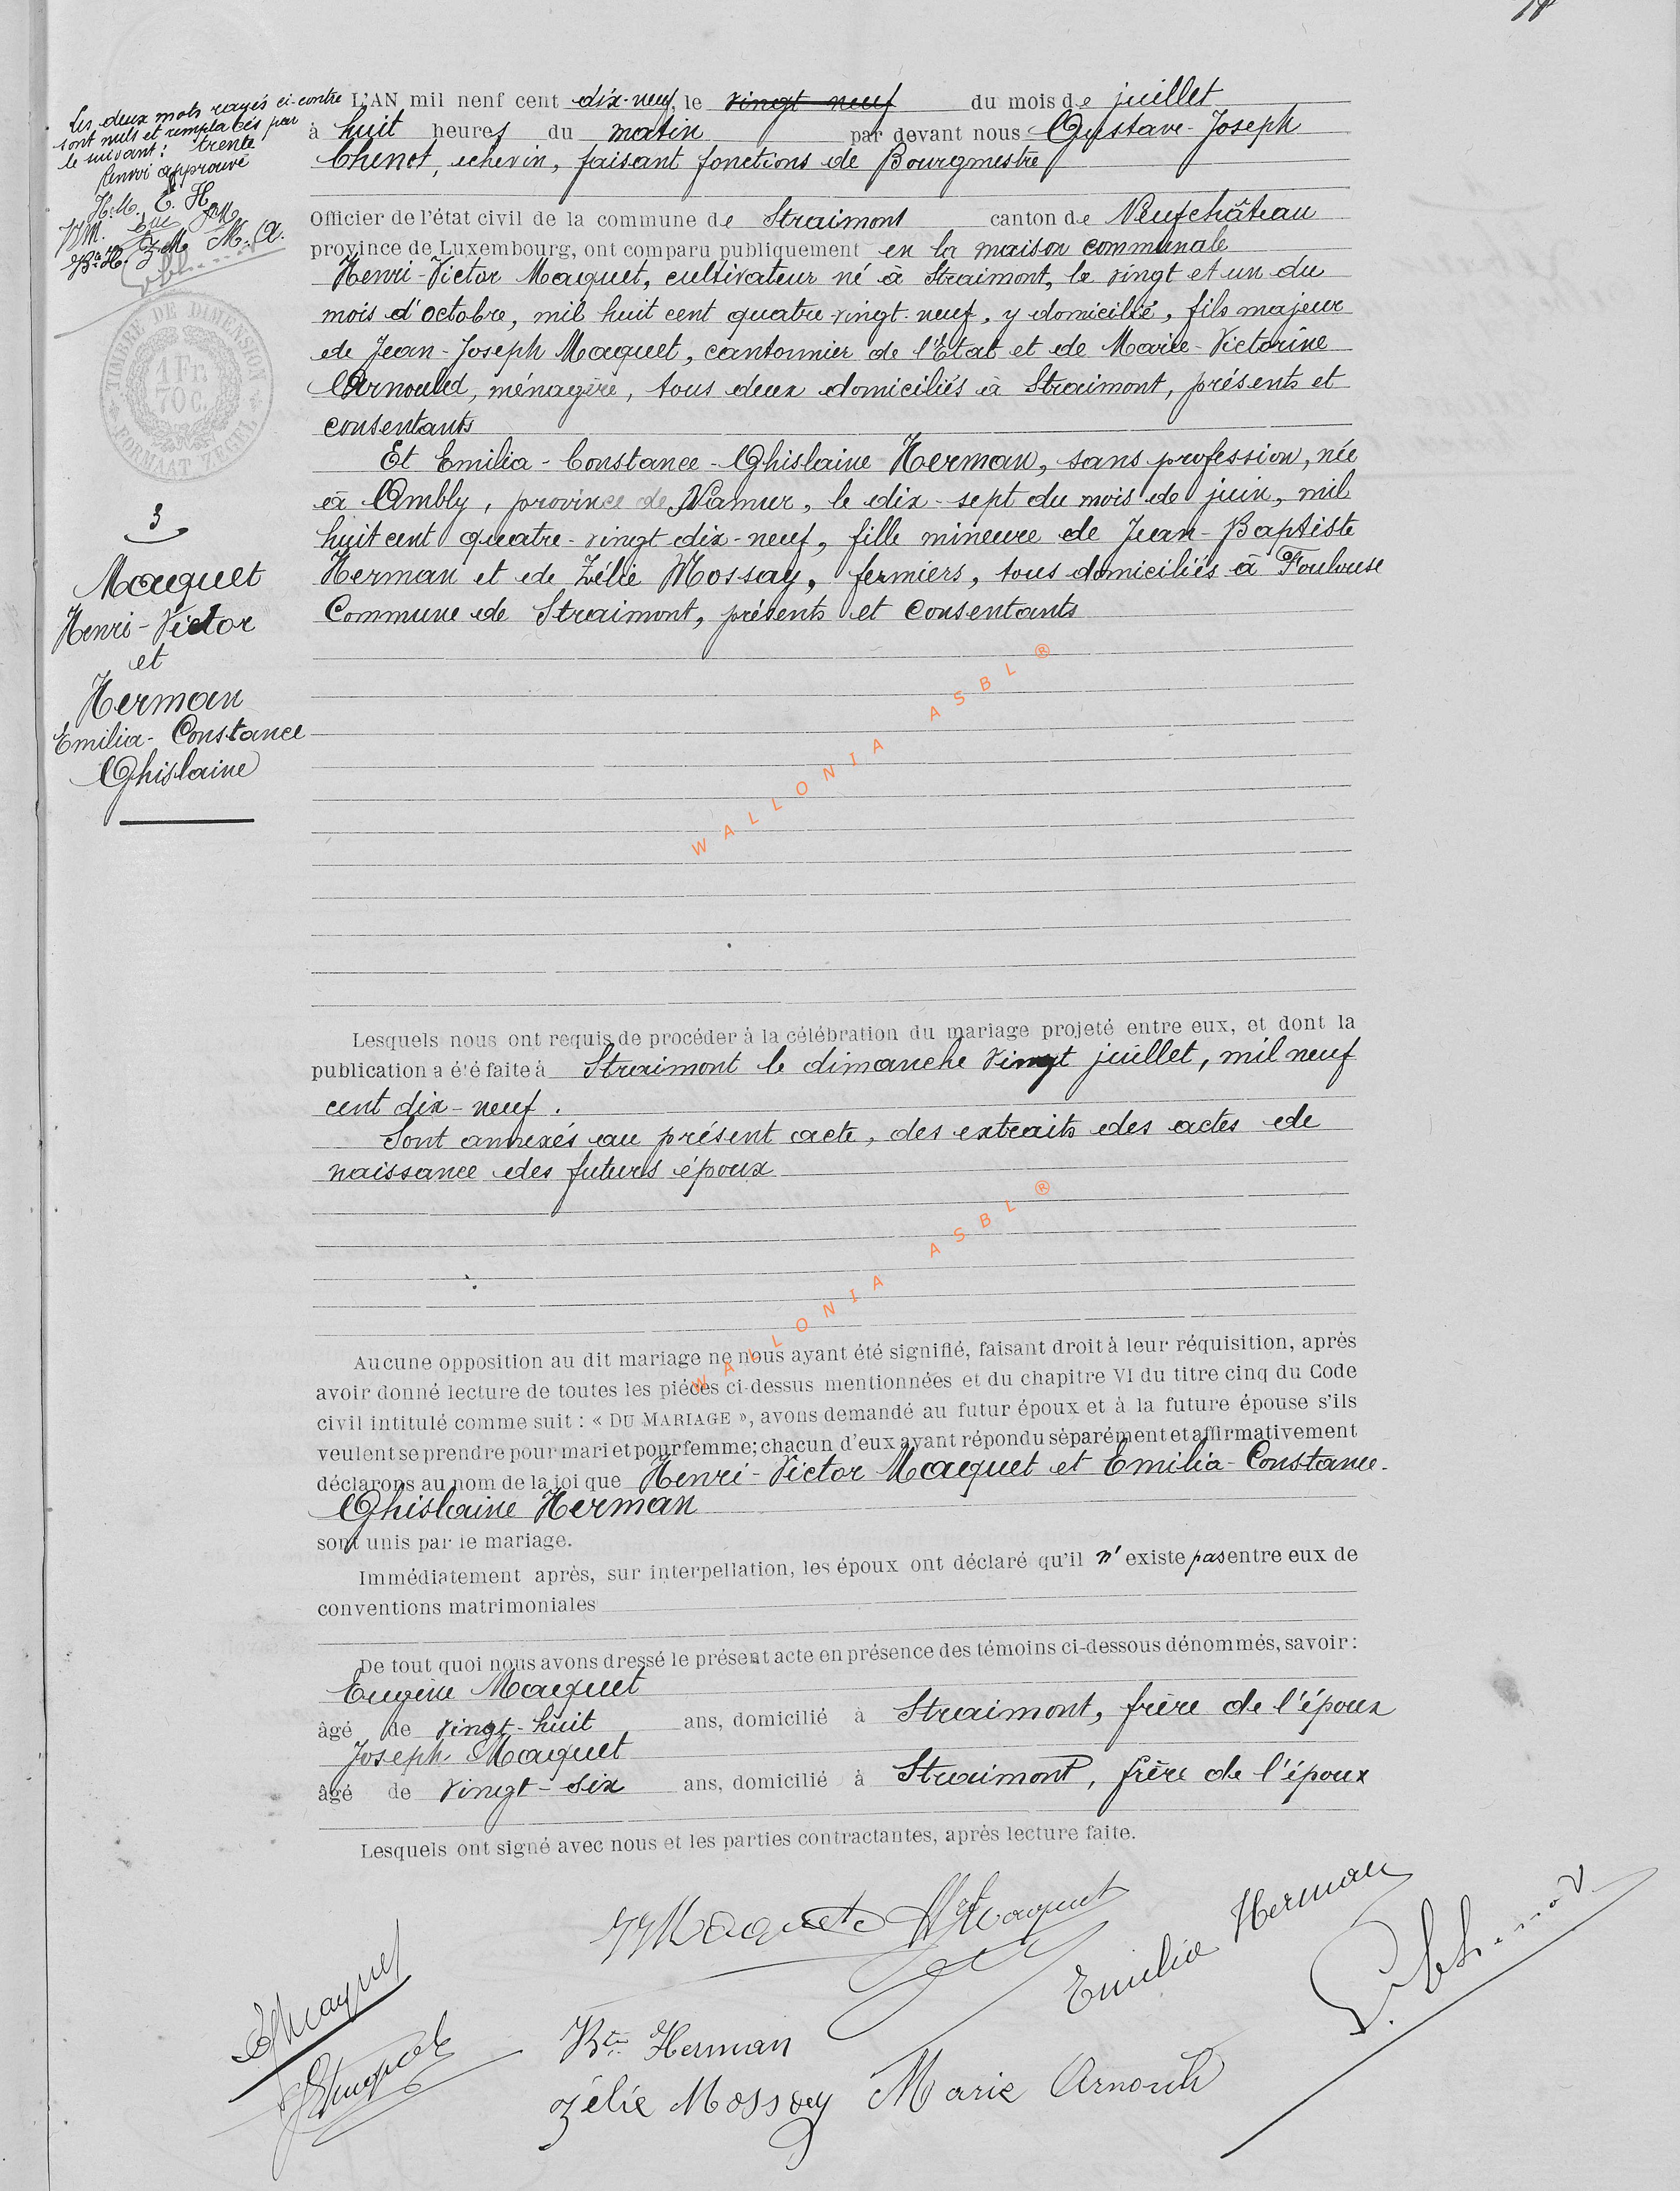 Les deux mots rayés ci-contre
sont nuls et remplacés par
le suivant : trente
Renvoi approuvé
H.M. E. H.
JM.
Bte H. Z.M. M. A.
TIMBRE DE DIMENSION
1 Fr.
70 C.
FORMAAT ZEGEL
3
Maquet
Henri-Victor
et
Herman
Emilia-Constance
Ghislaine
L'AN mil neuf cent dix-neuf, le vingt neuf du mois de juillet
à huit heures du matin par devant nous Gustave-Joseph
Chenot, echevin, faisant fonctions de Bourgmestre
Officier de l'état civil de la commune de Straimont canton de Neufchâteau
province de Luxembourg, ont comparu publiquement en la maison communale
Henri-Victor Maquet, cultivateur né à Straimont, le vingt et un du
mois d'octobre, mil huit cent quatre vingt-neuf, y domicilié, fils majeur
de Jean-Joseph Maquet, cantonnier de l'Etat et de Marie-Victorine
Arnould, ménagère, tous deux domiciliés à Straimont, présents et
consentants
Et Emilia-Constance-Ghislaine Herman, sans profession, née
à Ambly, province de Namur, le dix-sept du mois de juin, mil
huit cent quatre-vingt dix-neuf, fille mineure de Jean-Baptiste
Herman et de Zélie Mossay, fermiers, tous domiciliés à Toulouse
Commune de Straimont, présents et consentants
WALLONIA ASBL ®
Lesquels nous ont requis de procéder à la célébration du mariage projeté entre eux, et dont la
publication a été faite à Straimont le dimanche vingt juillet, mil neuf
cent dix-neuf.
Sont annexés au présent acte, des extraits des actes de
naissance des futurs époux
WALLONIA ASBL ®
Aucune opposition au dit mariage ne nous ayant été signifié, faisant droit à leur réquisition, après
avoir donné lecture de toutes les piéces ci-dessus mentionnées et du chapitre VI du titre cinq du Code
civil intitulé comme suit : « DU MARIAGE », avons demandé au futur époux et à la future épouse s'ils
veulent se prendre pour mari et pour femme; chacun d'eux ayant répondu séparément et affirmativement
déclarons au nom de la loi que Henri-Victor Maquet et Emilia-Constance-
Ghislaine Herman
sont unis par le mariage.
Immédiatement après, sur interpellation, les époux ont déclaré qu'il n'existe pas entre eux de
conventions matrimoniales
De tout quoi nous avons dressé le présent acte en présence des témoins ci-dessous dénommés, savoir :
Eugène Maquet
âgé de vingt-huit ans, domicilié à Straimont, frère de l'époux
Joseph Maquet
âgé de vingt-six ans, domicilié à Straimont, frère de l'époux
Lesquels ont signé avec nous et les parties contractantes, après lecture faite.
JJMaquet HMaquet
Emilia Herman
EMaquet
JMaquet
Bte Herman
Zélie Mossay Marie Arnould